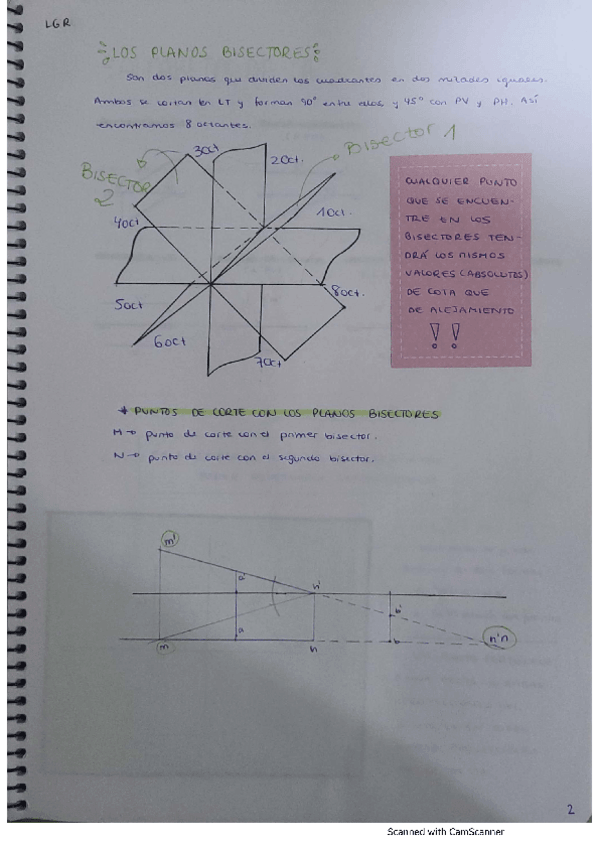 LGR
LOS PLANOS BISECTORES
Son dos planos que dividen los cuadrantes en dos mitades iguales.
Ambos se cortan en LT y forman 90° entre ellos y 45° con PV y PH. Así
encontramos 8 octantes.
3oct
2oct.
BISECTOR 1
BISECTOR
2
1oct.
4oct
5oct
8oct.
6oct
7oct
CUALQUIER PUNTO
QUE SE ENCUEN-
TRE EN LOS
BISECTORES TEN-
DRÁ LOS MISMOS
VALORES (ABSOLUTOS)
DE COTA QUE
DE ALEJAMIENTO
!!
* PUNTOS DE CORTE CON LOS PLANOS BISECTORES
M→ punto de corte con el primer bisector.
N→ punto de corte con el segundo bisector.
m'
a'
h'
b'
a
m
h
b
n'n
2
Scanned with CamScanner